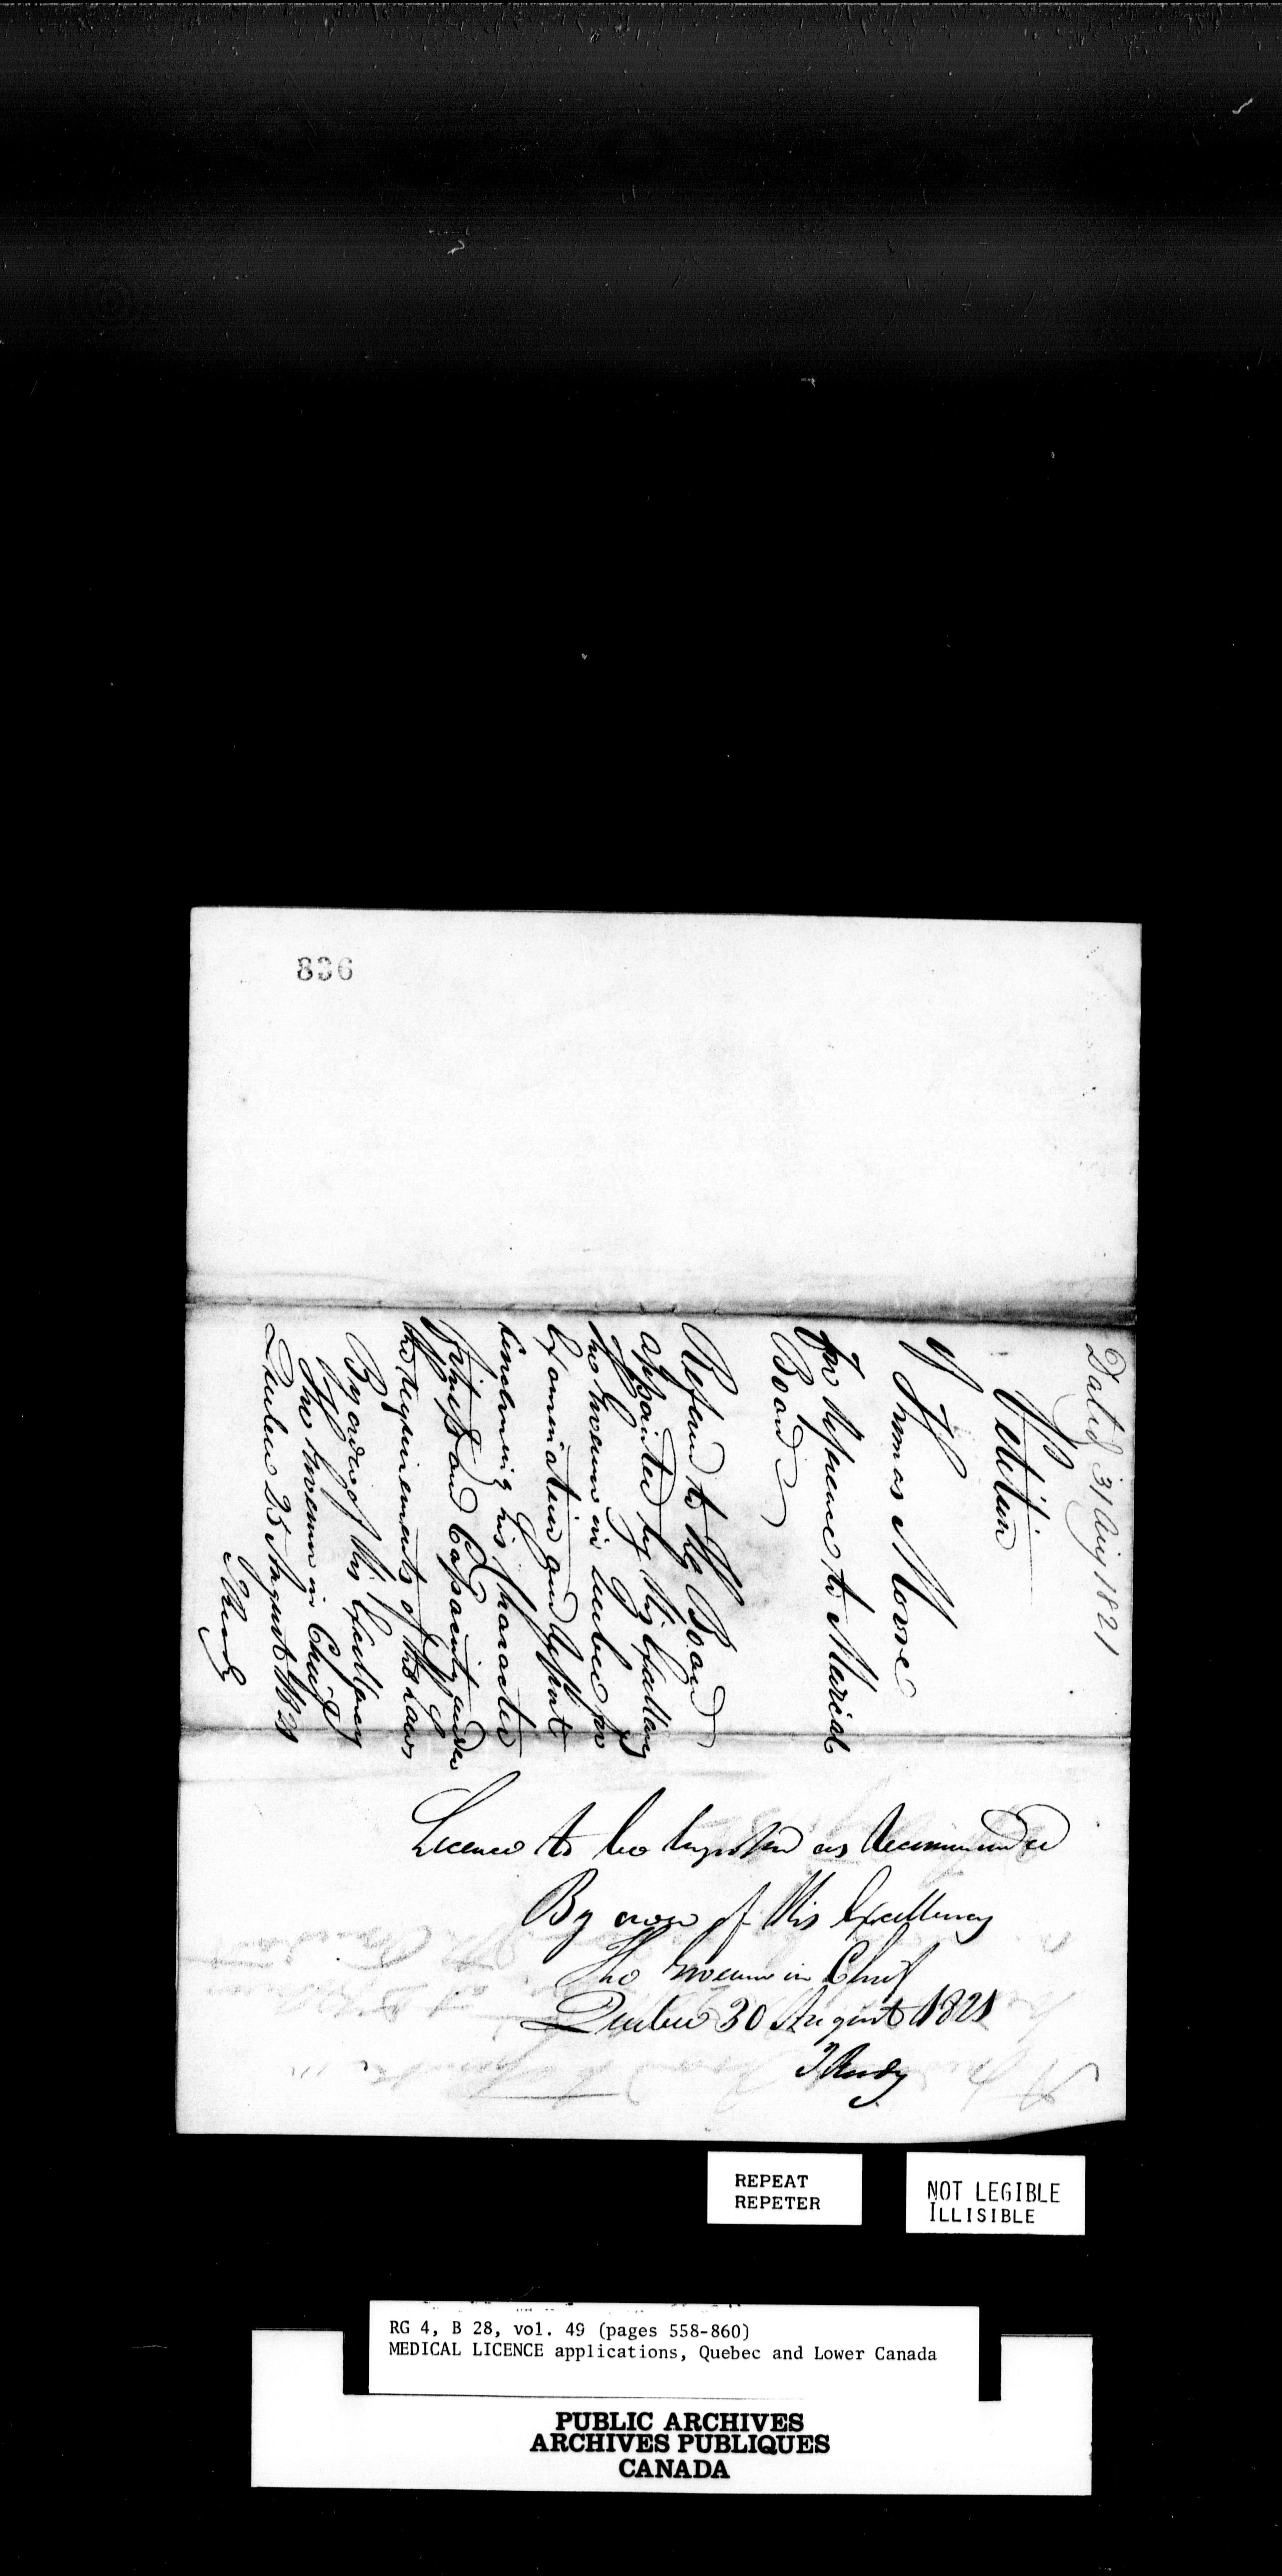 836
Dated 31 Aug 1821
Petition
of
Thomas Moore
for Reference to Medical
Board
Referred to the Board
appointed by His Excellency
the Governor in Quebec for
Examination and Report
concerning his Character
Fitness and Capacity under
the Requirements of the Laws
By order of His Excellency
The Governor in Chief
Quebec 25 August 1821
J Ready
Licence to be as Recommended
By order of His Excellency
The Governor in Chief
Quebec 30 August 1821
J Ready
REPEAT
REPETER
NOT LEGIBLE
ILLISIBLE
RG 4, B 28, vol. 49 (pages 558-860)
MEDICAL LICENCE applications, Quebec and Lower Canada
PUBLIC ARCHIVES
ARCHIVES PUBLIQUES
CANADA